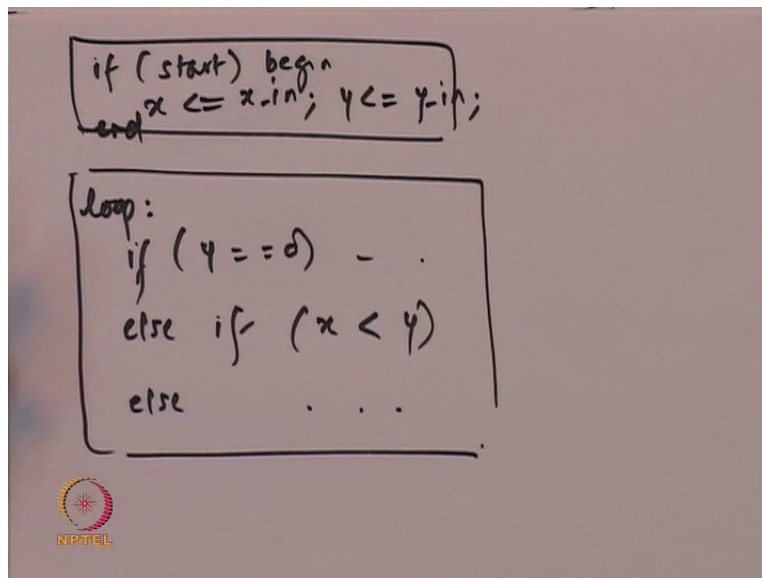 if (start) begin
x <= x_in; y <= y_in;
end
loop:
if (y == 0) - .
else if (x < y)
else . . .
NPTEL